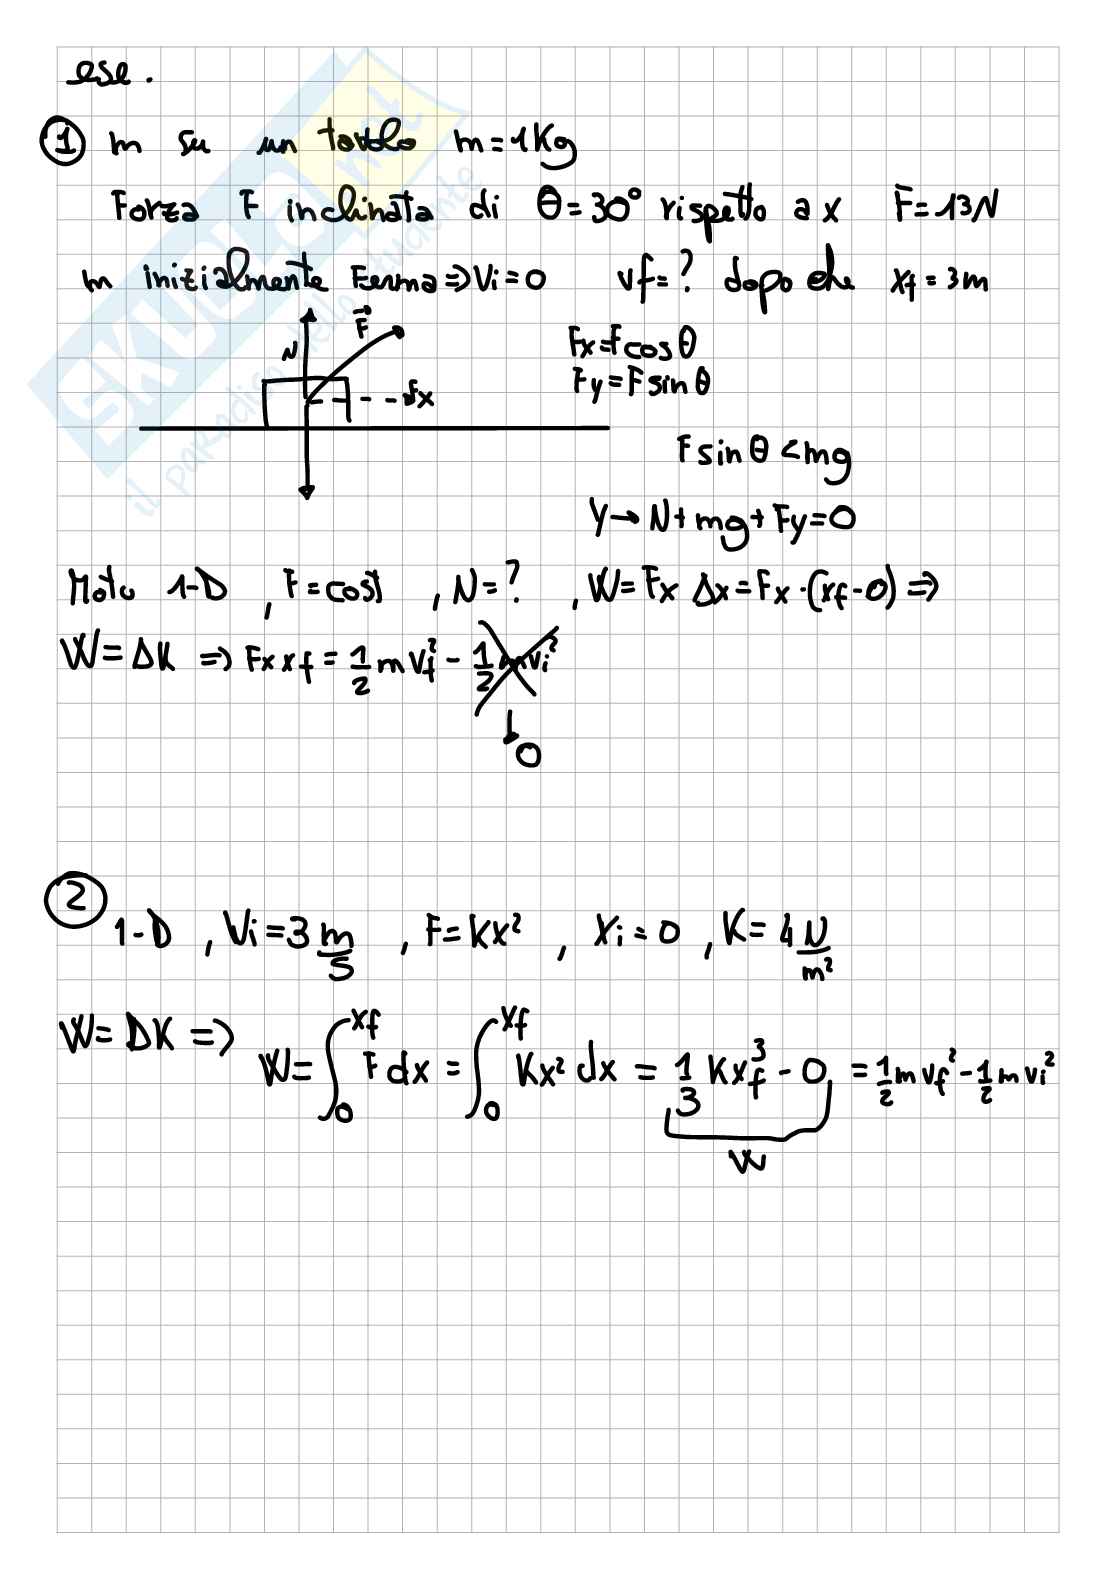 ese.
① m su un tavolo m=1Kg
Forza F inclinata di θ=30° rispetto a x F=13N
m inizialmente Ferma⇒Vi=0 vf=? dopo che xf=3m
N F⃗ Fx
Fx=Fcosθ
Fy=Fsinθ
Fsinθ<mg
Y→N+mg+Fy=0
Moto 1-D, F=cost, N=?, W=Fx Δx=Fx·(xf-0)⇒
W=ΔK ⇒ Fx xf = 1/2 m Vf² - 1/2 mvi²
0
② 1-D, Vi=3 m/s, F=Kx², Xi=0, K=4 N/m²
W=ΔK ⇒ W=∫₀^xf F dx = ∫₀^xf Kx² dx = 1/3 Kxf³ - 0 = 1/2 m vf² - 1/2 m vi²
W
SKUOLA.net
il paradiso dello studente